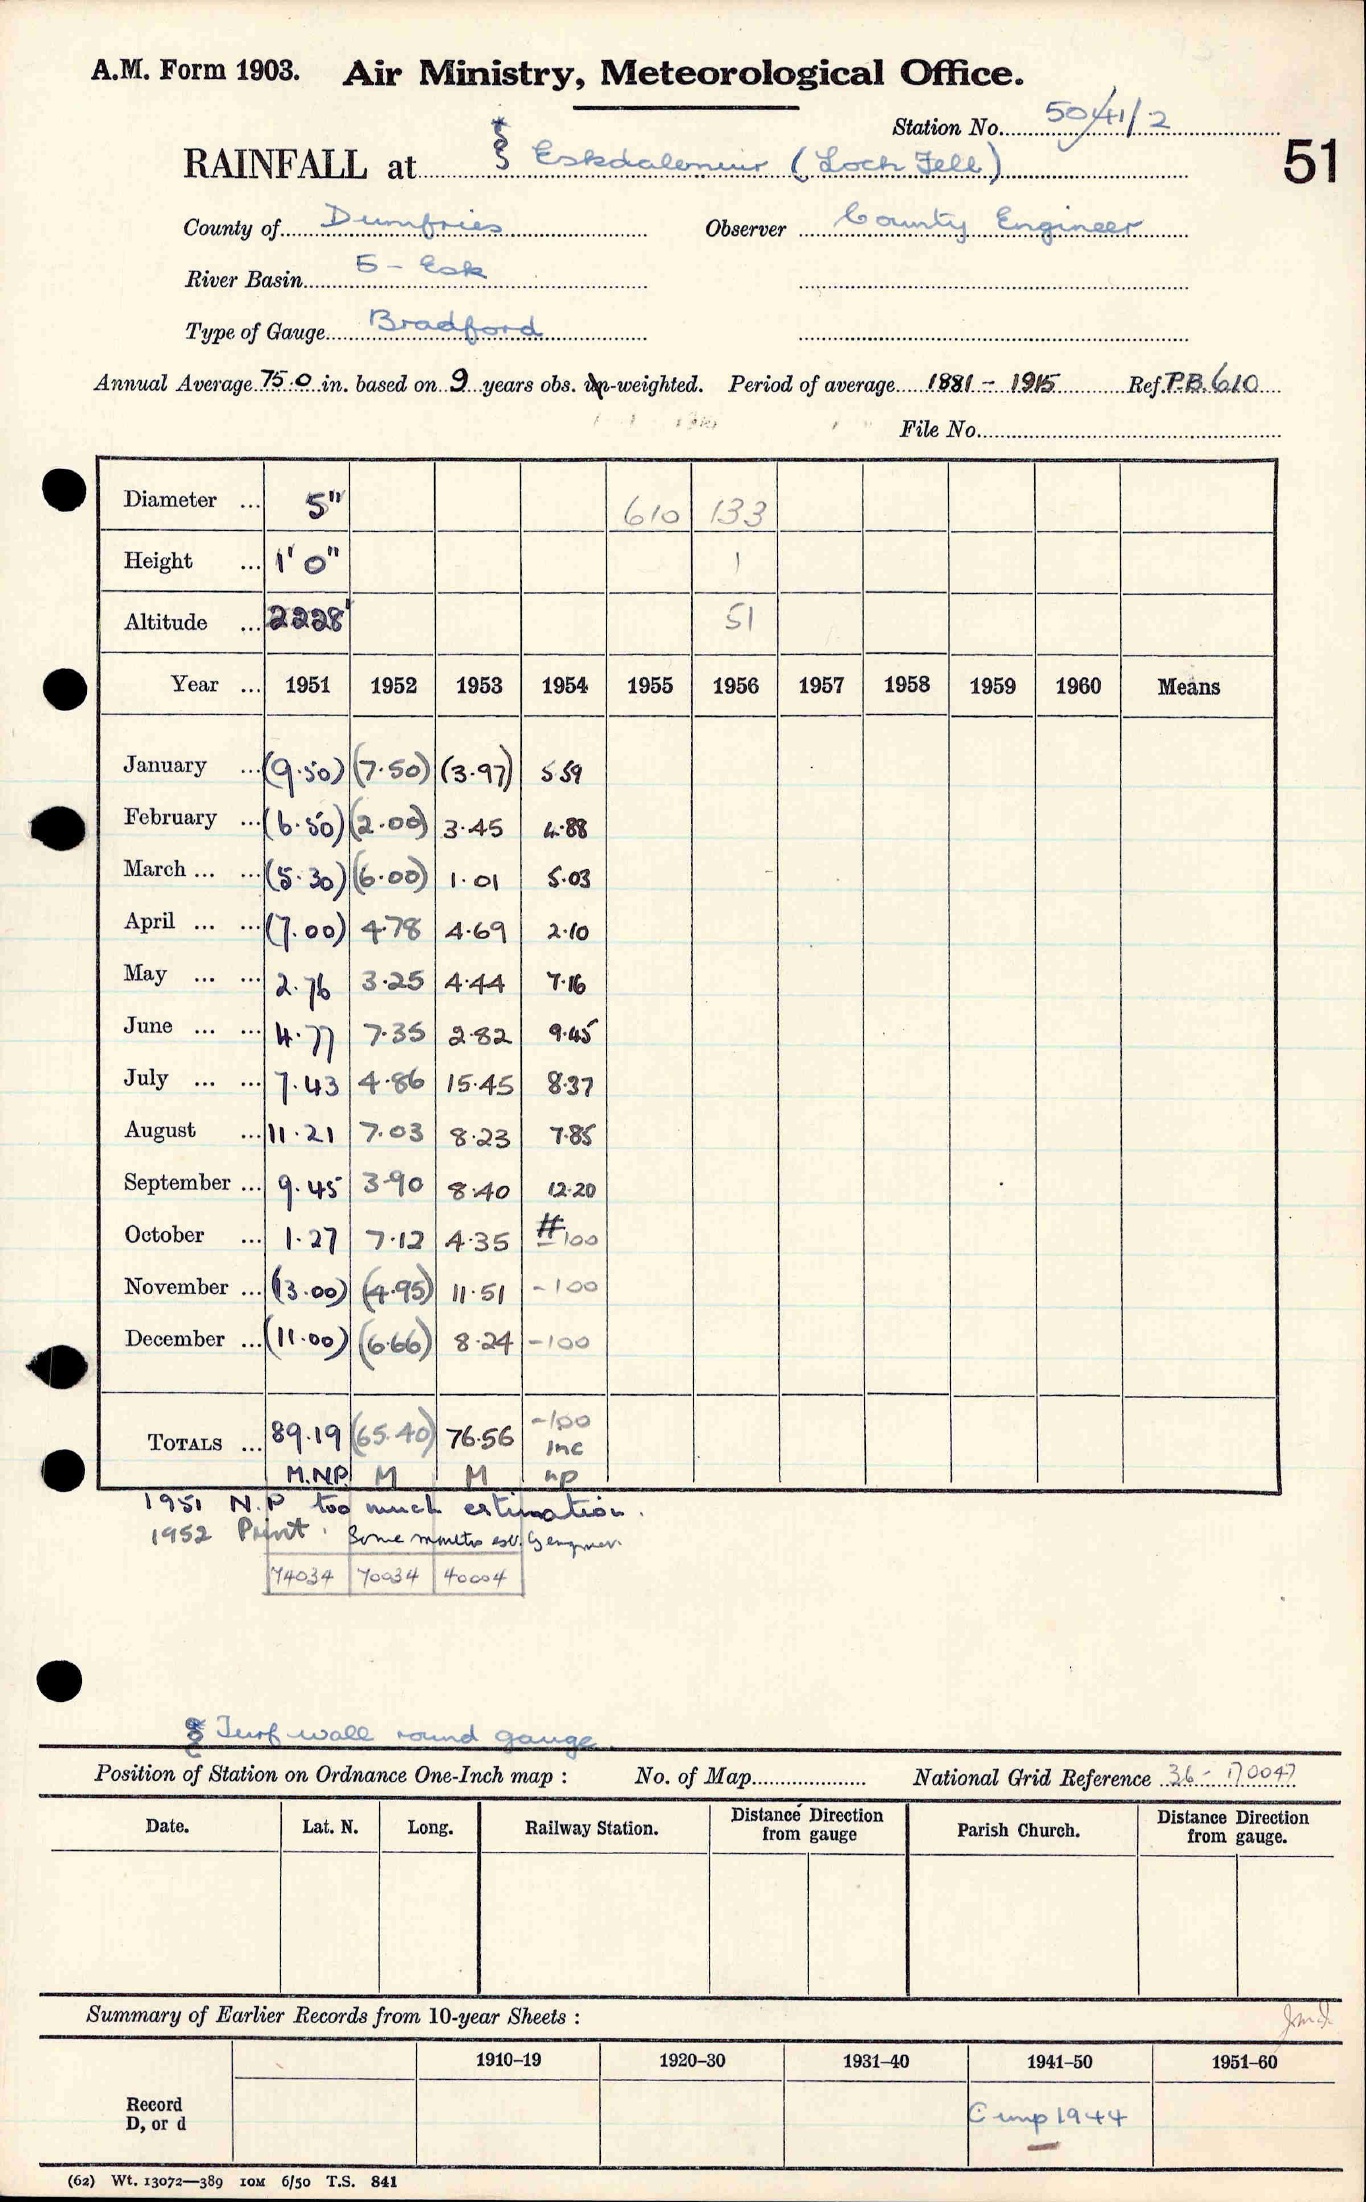 A.M. Form 1903. Air Ministry, Meteorological Office.
Station No. 5041/2
51
RAINFALL at Eskdalemuir (Loch Fell)
County of Dumfries Observer County Engineer
River Basin 5 - Esk
Type of Gauge Bradford
Annual Average 75.0 in. based on 9 years obs. un-weighted. Period of average 1881 - 1915 Ref. P.B. 610
File No.
Diameter ... 5" 610 133
Height ... 1' 0" 1
Altitude ... 2228' 51
Year ... 1951 1952 1953 1954 1955 1956 1957 1958 1959 1960 Means
January ... (9.50) (7.50) (3.97) 5.59
February ... (6.50) (2.00) 3.45 4.88
March ... ... (5.30) (6.00) 1.01 5.03
April ... ... (7.00) 4.78 4.69 2.10
May ... ... 2.76 3.25 4.44 7.16
June ... ... 4.77 7.35 2.82 9.45
July ... ... 7.43 4.86 15.45 8.37
August ... 11.21 7.03 8.23 7.85
September ... 9.45 3.90 8.40 12.20
October ... 1.27 7.12 4.35 # -100
November ... (13.00) (4.95) 11.51 -100
December ... (11.00) (6.66) 8.24 -100
TOTALS ... 89.19 (65.40) 76.56 -100 inc
M.N.P. M M np
1951 N.P too much estimation.
1952 Print. Some months est. by engineer.
74034 70034 40004
Turf wall round gauge.
Position of Station on Ordnance One-Inch map : No. of Map National Grid Reference 36-170047
Date. Lat. N. Long. Railway Station. Distance Direction from gauge Parish Church. Distance Direction from gauge.
Summary of Earlier Records from 10-year Sheets :
1910–19 1920–30 1931–40 1941–50 1951–60
Record
D, or d
1944
(62) Wt. 13072—389 10M 6/50 T.S. 841